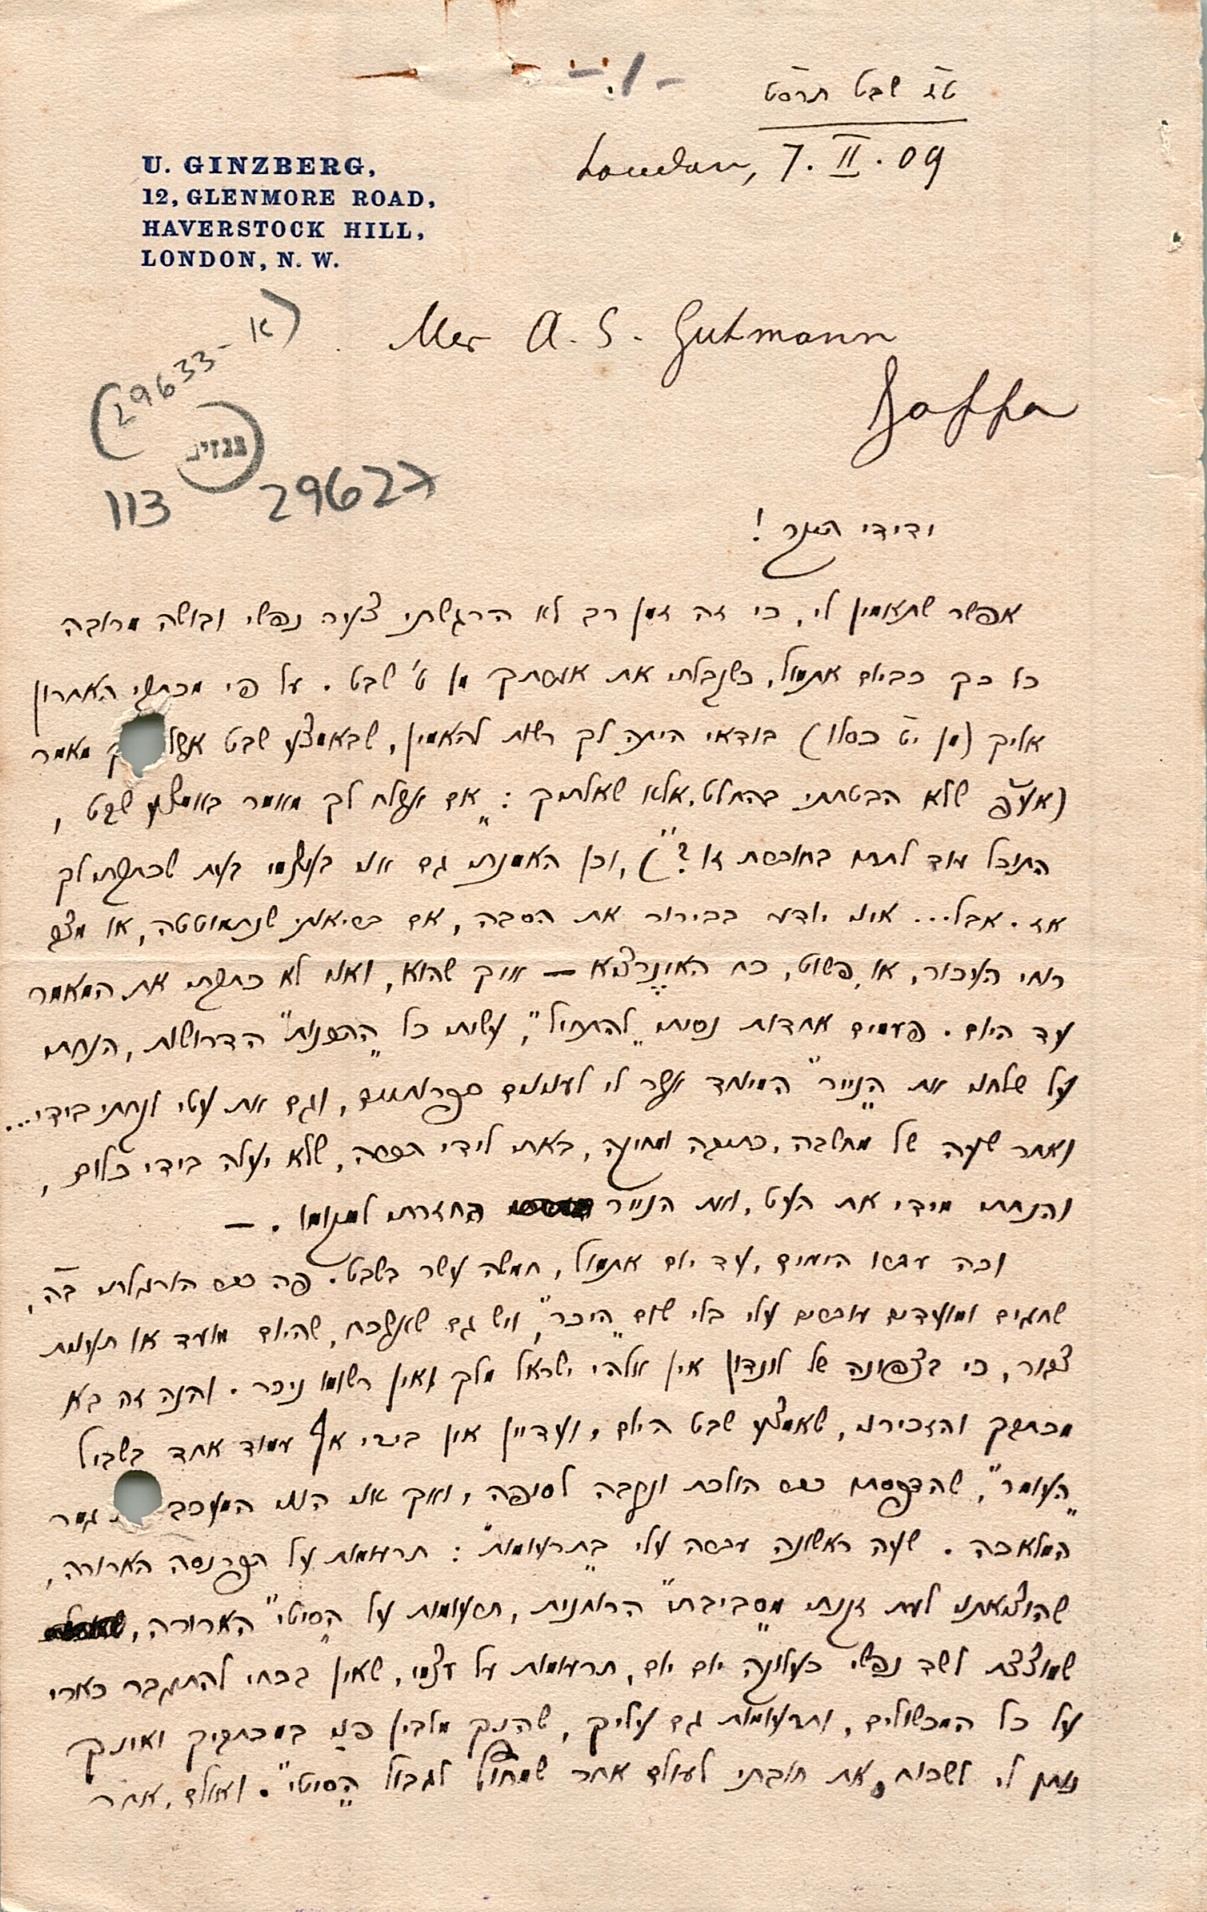 -1-
ט״ז שבט תרס״ט
London, 7. II. 09
U. GINZBERG,
12, GLENMORE ROAD,
HAVERSTOCK HILL,
LONDON, N. W.
Mer A. S. Gutmann
Jaffa
(29633-א)
גנזים
113 29627
ידידי היקר!
אפשר שתאמין לי, כי זה זמן רב לא הרגשתי צער נפשי ובושה מרובה
כל כך כביום אתמול, כשקבלתי את מן ט' שבט. על פי מכתבי האחרון
אליך (מן י״ט כסלו) בודאי היתה לך רשות להאמין, שבאמצע שבט מאמר
(אע״פ שלא הבטחתי בהחלט, אלא שאלתיך: "אם אשלח לך מאמר באמצע שבט,
התוכל עוד לתתו בחוברת זו?"), וכן האמנתי גם אני בעצמי בעת שכתבתי לך
אז. אבל... איני יודע בבירור את הסבה, אם בריאותי שנתמוטטה, או מצב
רוחי העכור, או, פשוט, כח האינרציא — איך שהוא, ואני לא כתבתי את המאמר
עד היום. פעמים אחדות נסיתי "להתחיל", עשיתי כל "ההכנות" הדרושות, הנחתי
על שלחני את "הנייר" המיוחד אשר לי לענינים ספרותיים, וגם את עטי לקחתי בידי...
ולאחר שעה של מחשבה, כתיבה ומחיקה, באתי לידי הכרה, שלא יעלה בידי כלום,
והנחתי מידי את העט, ואת הנייר החזרתי למקומו. —
וכה עברו הימים, עד יום אתמול, חמשה עשר בשבט. פה כבר הורגלתי בזה,
שחגים ומועדים עוברים עלי בלי שום "היכר", ויש גם שאשכח, שהיום מועד או תענית
צבור, כי בצפונה של לונדון אין אלהי ישראל מלך ואין רשומו ניכר. והנה זה בא
מכתבך והזכירני, שאמצע שבט היום, ועדיין אין בידי אף עמוד אחד בשביל
"העומר", שהדפסתו כבר הולכת וקרבה לסופה, ואך אני הנני המעכב גמר
המלאכה. שעה ראשונה עברה עלי ב"תרעומות": תרעומות על הפרנסה הארורה,
שהוציאתני לעת זקנתי מ"סביבתי" הרוחנית, תרעומות על ה"סיטי" הארורה,
שמוצצת לשד נפשי כעלוקה יום יום, תרעומות על עצמי, שאין בכחי להתגבר כארי
על כל המכשולים, ותרעומות גם עליך, שהנך מלבין פני במכתביך ואינך
נותן לי לשכוח את חובתי לעולם אחר שמחוץ לגבול ה"סיטי". ואולם, אחר